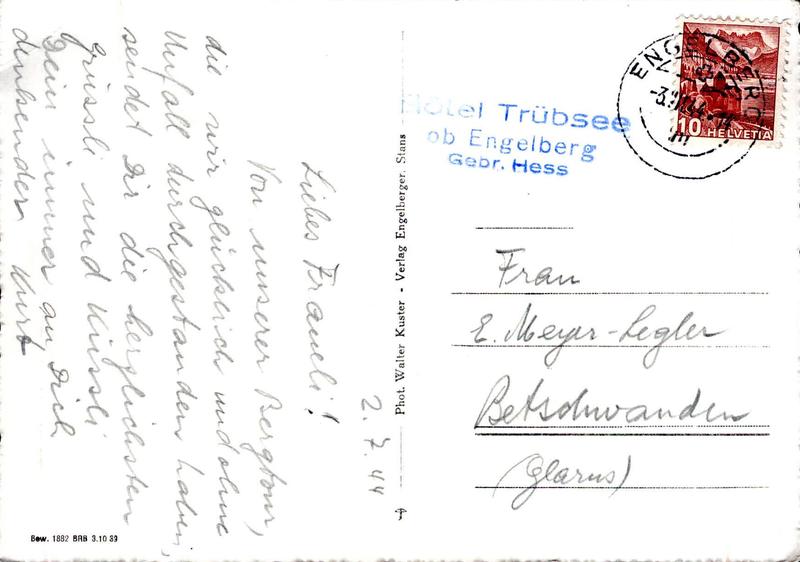 2.7.44
Liebes Fraueli!
Von unserer Bergtour,
die wir glücklich und ohne
Unfall durchgestanden haben,
sendet Dir die herzlichsten
Grüssli und Küssli
Dein immer an Dich
denkender Kurt
Phot. Walter Kuster - Verlag Engelberger, Stans
Bew. 1882 BRB 3.10 39
Hotel Trübsee
ob Engelberg
Gebr. Hess
ENGELBERG
10 HELVETIA
Frau
E. Meyer-Legler
Betschwanden
(Glarus)